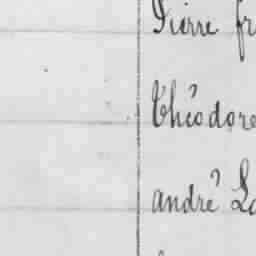 Pierre fr
Théodore
andré La